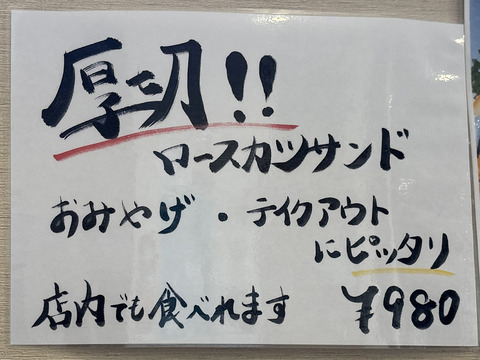 厚切!!
ロースカツサンド
おみやげ・テイクアウト
にピッタリ
店内でも食べれます ¥980